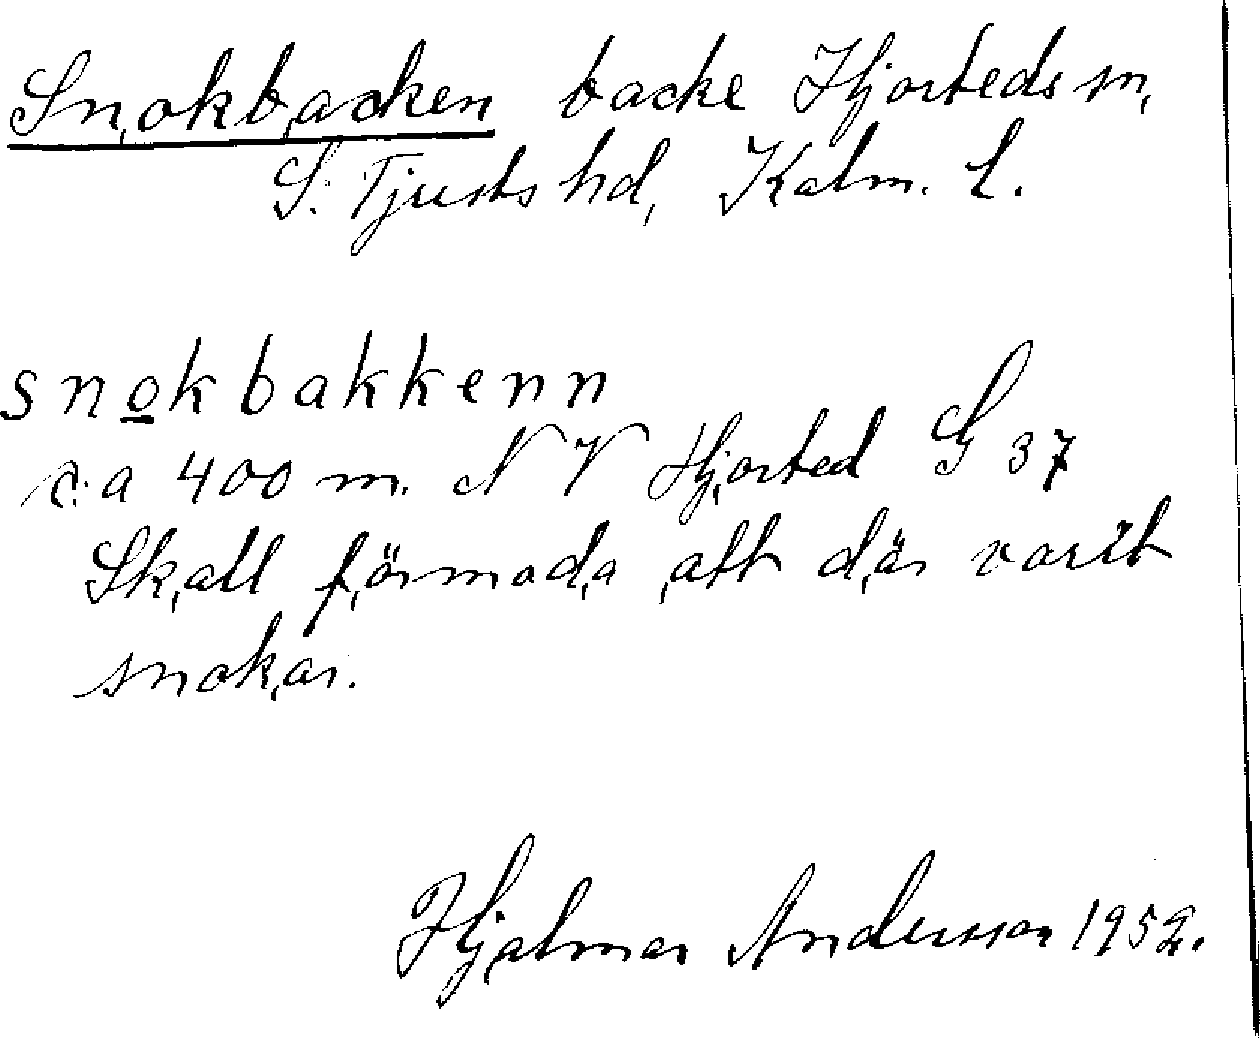 Snokbacken backe Hjorteds sn,
S. Tjusts hd, Kalm. L.
snokbakkenn
c:a 400 m. NV Hjorted G 37
Skall förmoda att där varit
snokar.
Hjalmar Andersson 1952.